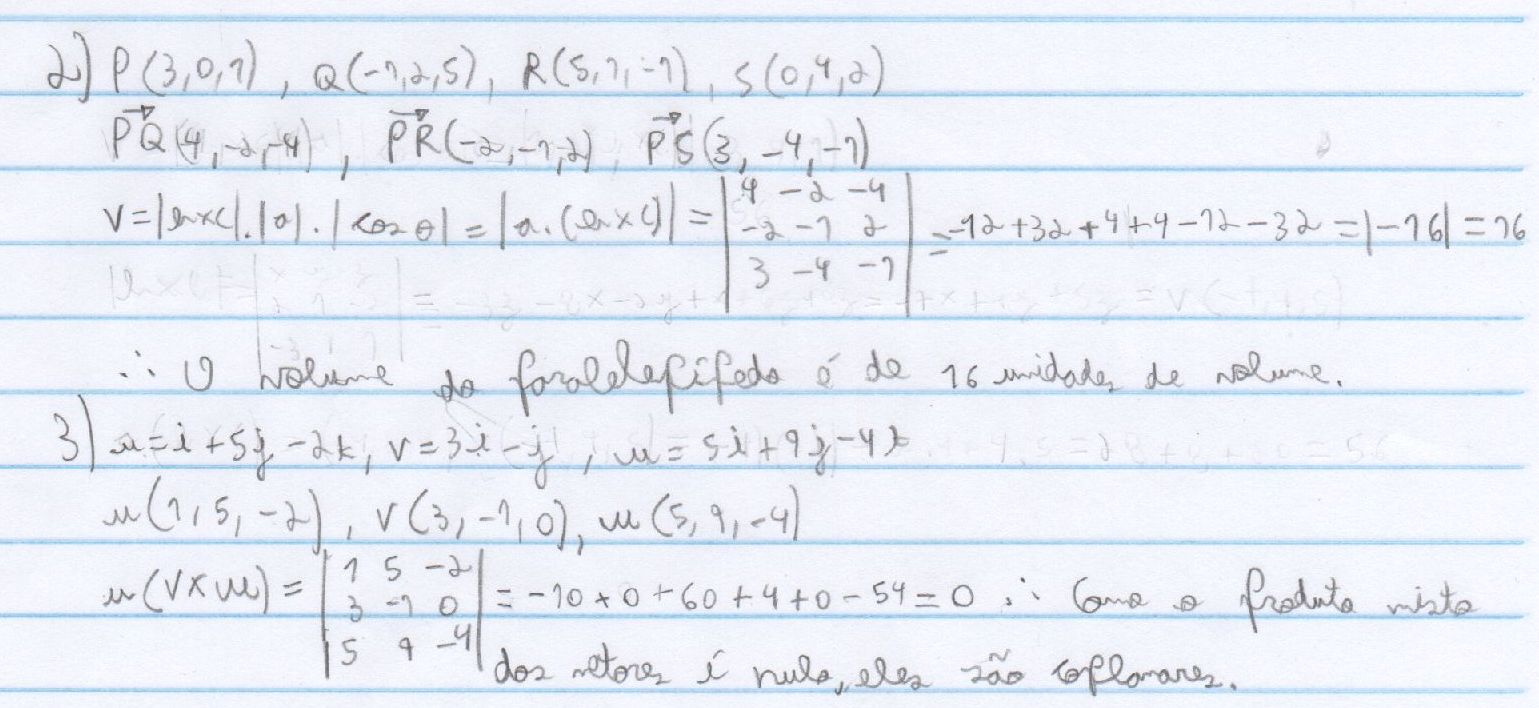 2) P(3,0,1), Q(-1,2,5), R(5,1,-1), S(0,4,2)
PQ(4,-2,-4), PR(-2,-1,2), PS(3,-4,-1)
V=|bxc|.|a|.|cos θ| = |a.(bxc)| = |4 -2 -4| = -12+32+4+4-12-32 = |-16| = 16
|-2 -1 2|
|3 -4 -1|
∴ O volume do paralelepípedo é de 16 unidades de volume.
3) u=i+5j-2k, v=3i-j, w=5i+9j-4k
u(1,5,-2), v(3,-1,0), w(5,9,-4)
u(vxw) = |1 5 -2| = -10+0+60+4+0-54=0 ∴ Como o produto misto
|3 -1 0|
|5 9 -4|
dos vetores é nulo, eles são coplanares.